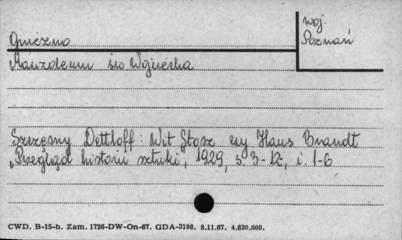 Gniezno
woj.
Poznań
Mauzoleum św Wojciecha
Szczęsny Dettloff: Wit Stosz czy Hans Brandt
"Przegląd historii sztuki", 1929, s 3-12, i. 1-6
CWD. B-15-b. Zam. 1726-DW-On-67. GDA-3158. 8.11.67. 4.630.000.